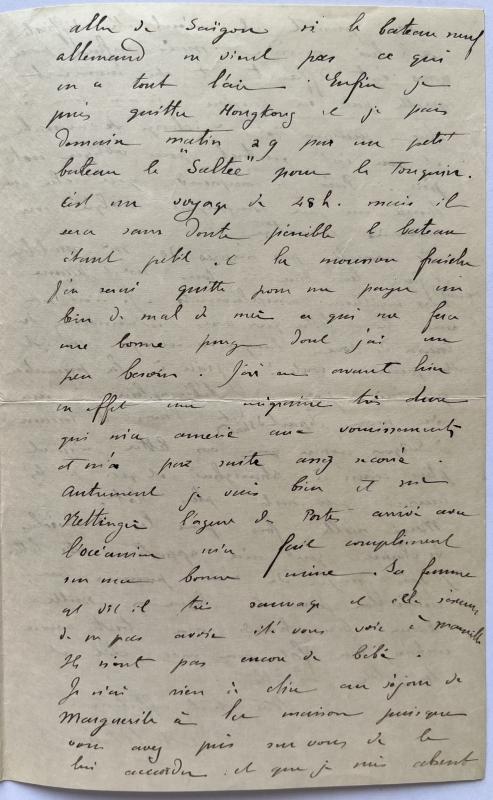 aller de Saïgon si le bateau neuf
allemand ne vient pas ce qui
en a tout l'air. Enfin je
puis quitter Hongkong et je pars
demain matin 29 par un petit
bateau le "Saltee" pour le Tonquin.
C'est un voyage de 48h. mais il
sera sans doute pénible le bateau
étant petit et la mousson fraîche
J'en serai quitte pour me payer un
bon de mal de mer ce qui me fera
une bonne purge dont j'ai un
peu besoin. J'ai eu avant hier
en effet une migraine très dure
qui m'a amené aux vomissements
et m'a par suite assez secoué.
Autrement je vais bien et
Rettinger l'agent de Portes arrivé avec
l'océanien m'a fait compliment
sur ma bonne mine. Sa femme
est dit il très sauvage et elle
de ne pas avoir été vous voir à Marseille
Ils n'ont pas encore de bébé.
Je n'ai rien à dire au séjour de
Marguerite à la maison puisque
vous avez pris sur vous de le
lui accorder et que je suis absent